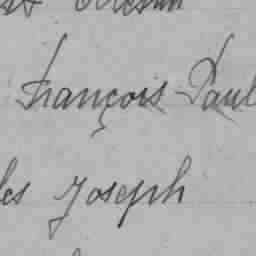 François Paul
les Joseph